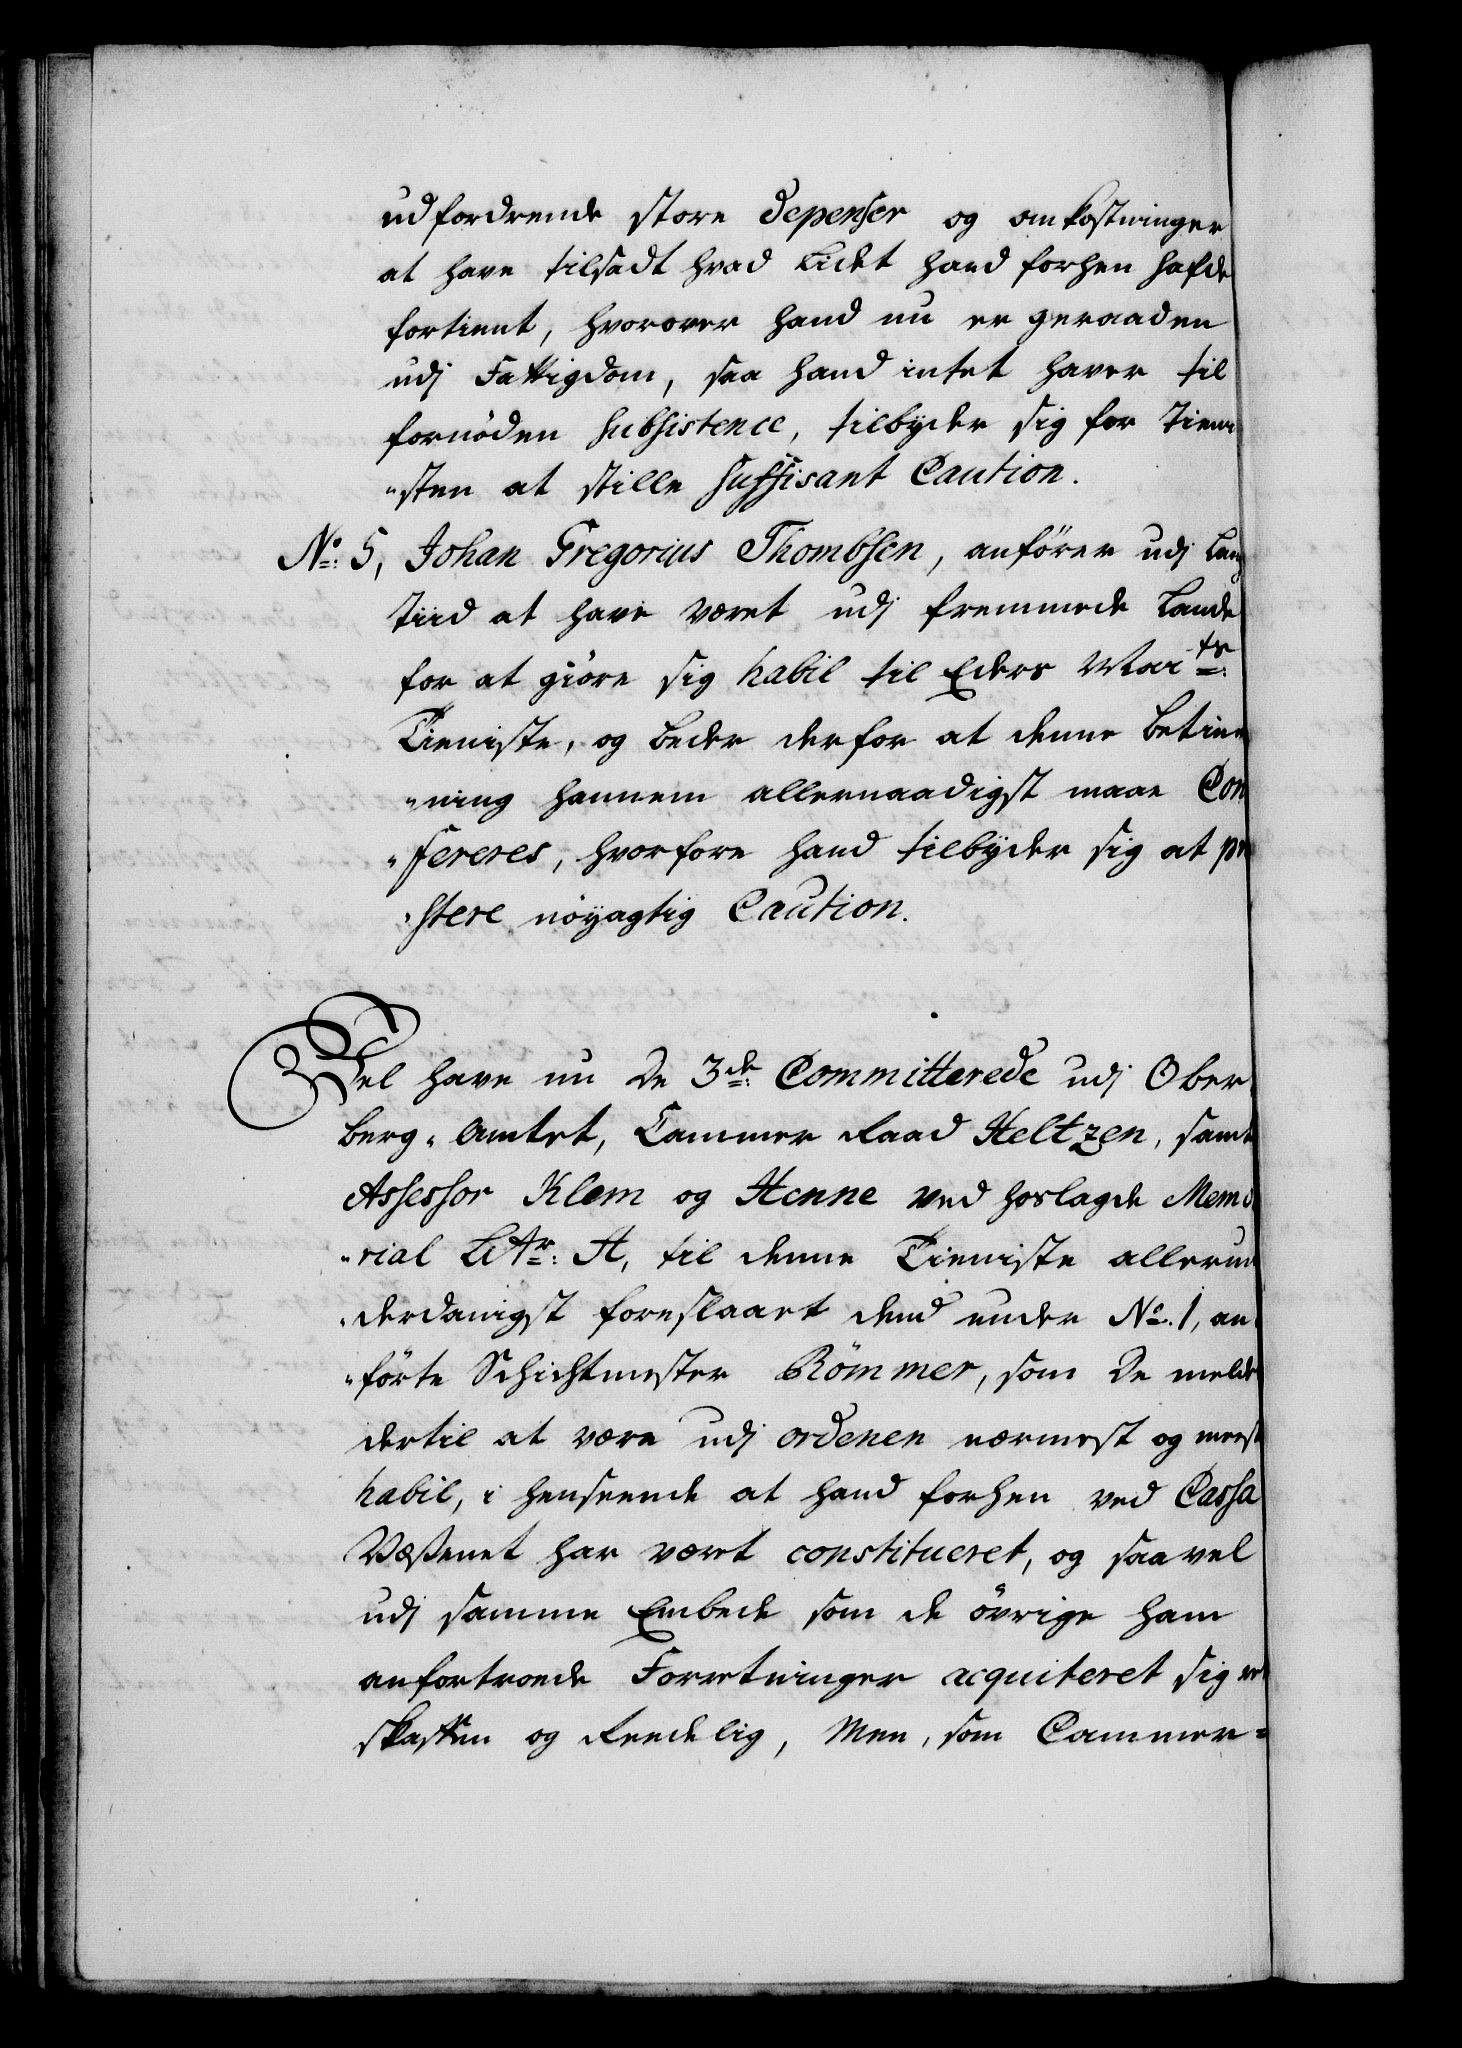 udfordrende store depenser og omkostninger
at have tilsadt hvad Lidet hand forhen hafde
fortient, hvorover hand nu er geraaden
udj Fattigdom, saa hand intet haver til
fornöden subsistence, tilbyder sig for Tieni
"sten at stille suffisant Caution.
No: 5, Johan Gregorius Thombsen, anfører udj Lang
Tiid at have været udj fremmede Lande
for at giöre sig habil til Eders Maits:
Tieniste, og beder derfor at denne betien
"ning hannem allernaadigst maae Con
"fereres, hvorfore hand tilbyder sig at præ
"stere nöyagtig Caution.
Vel have nu De 3de: Committerede udj Ober
berg-Amtet, Cammer Raad Heltzen, samt
Assessor Klem og Henne ved hoslagde Memo
"rial Litr: A, til denne Tieniste allerun
"derdanigst foreslaaet dend under No. 1, an
"förte Schichtmester Römmer, som De melde
dertil at være udj ordenen nærmest og meest
habil, i henseende at hand forhen ved Cassa
Væsenet har været constitueret, og saavel
udj samme Embede som de övrige ham
anfortroede Forretninger acquiteret sig ret
skaffen og Reedelig, Men, som Cammer-